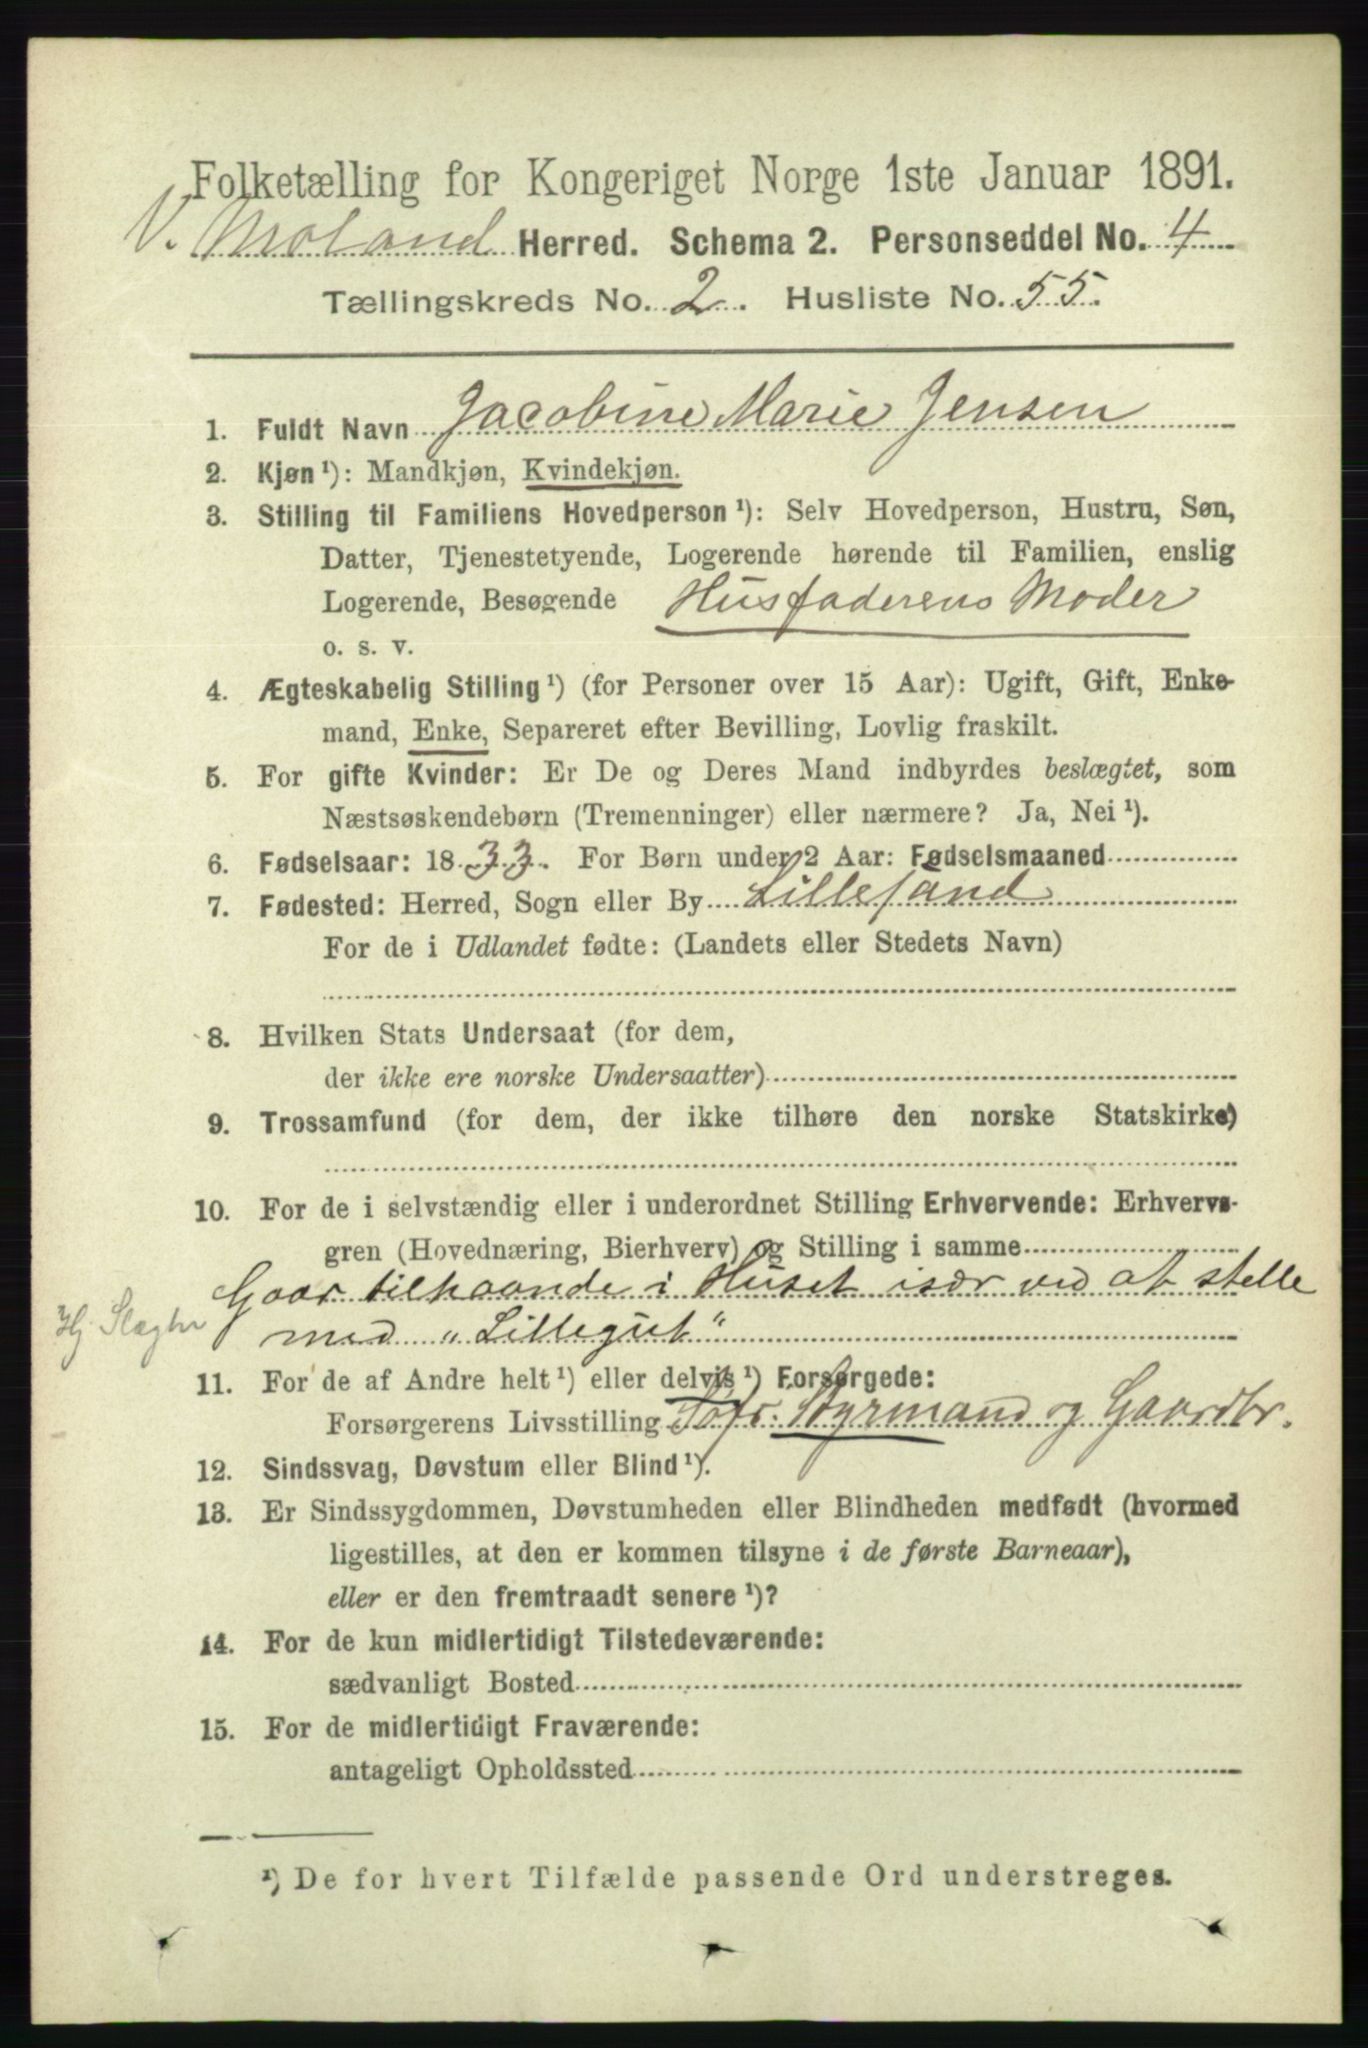 Folketælling for Kongeriget Norge 1ste Januar 1891.
V. Moland Herred. Schema 2. Personseddel No. 4
Tællingskreds No. 2. Husliste No. 55.
1. Fuldt Navn Jacobine Marie Jensen
2. Kjøn ¹): Mandkjøn, Kvindekjøn.
3. Stilling til Familiens Hovedperson ¹): Selv Hovedperson, Hustru, Søn,
Datter, Tjenestetyende, Logerende hørende til Familien, enslig
Logerende, Besøgende Husfaderens Moder
o. s. v.
4. Ægteskabelig Stilling ¹) (for Personer over 15 Aar): Ugift, Gift, Enke-
mand, Enke, Separeret efter Bevilling, Lovlig fraskilt.
5. For gifte Kvinder: Er De og Deres Mand indbyrdes beslægtet, som
Næstsøskendebørn (Tremenninger) eller nærmere? Ja, Nei ¹).
6. Fødselsaar: 1833. For Børn under 2 Aar: Fødselsmaaned
7. Fødested: Herred, Sogn eller By Lillesand
For de i Udlandet fødte: (Landets eller Stedets Navn)
8. Hvilken Stats Undersaat (for dem,
der ikke ere norske Undersaatter)
9. Trossamfund (for dem, der ikke tilhøre den norske Statskirke)
10. For de i selvstændig eller i underordnet Stilling Erhvervende: Erhvervs-
gren (Hovednæring, Bierhverv) og Stilling i samme
Gaar tilhaande i Huset især ved at stelle
Hj. Slægtn med "Lillegut"
11. For de af Andre helt ¹) eller delvis ¹) Forsørgede:
Forsørgerens Livsstilling Søfr. Styrmand og Gaardbr.
12. Sindssvag, Døvstum eller Blind ¹).
13. Er Sindssygdommen, Døvstumheden eller Blindheden medfødt (hvormed
ligestilles, at den er kommen tilsyne i de første Barneaar),
eller er den fremtraadt senere ¹)?
14. For de kun midlertidigt Tilstedeværende:
sædvanligt Bosted
15. For de midlertidigt Fraværende:
antageligt Opholdssted
¹) De for hvert Tilfælde passende Ord understreges.